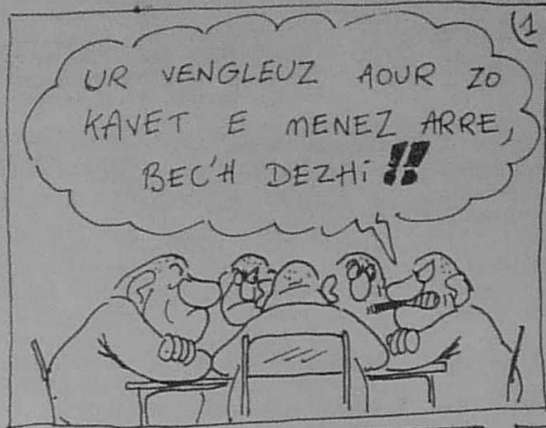 (1
UR VENGLEUZ AOUR ZO
KAVET E MENEZ ARRE,
BEC'H DEZHI !!